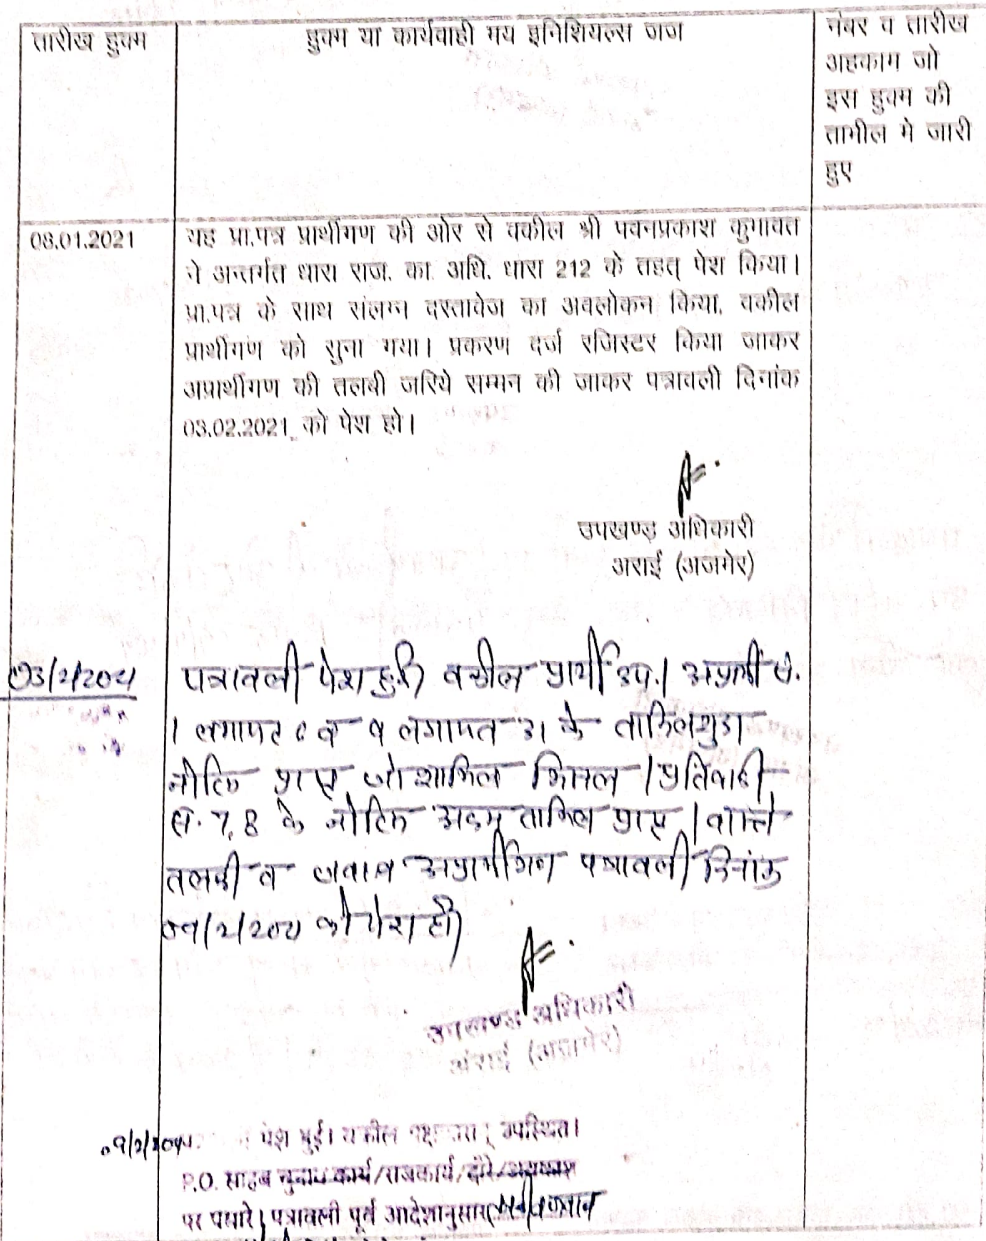 तारीख हुक्म
हुक्म या कार्यवाही मय इनिशियल्स जज
नंबर व तारीख
अहकाम जो
इस हुक्म की
तामील मे जारी
हुए
08.01.2021
यह प्रा.पत्र प्रार्थीगण की ओर से वकील श्री पवनप्रकाश कुमावत
ने अन्तर्गत धारा राज. का. अधि. धारा 212 के तहत् पेश किया।
प्रा.पत्र के साथ संलग्न दस्तावेज का अवलोकन किया, वकील
प्रार्थीगण को सुना गया। प्रकरण दर्ज रजिस्टर किया जाकर
अप्रार्थीगण की तलबी जरिये सम्मन की जाकर पत्रावली दिनांक
03.02.2021 को पेश हो।
उपखण्ड अधिकारी
अराई (अजमेर)
03/2/2021
पत्रावली पेश हुई। वकील प्रार्थी उप.। अप्रार्थी सं.
1 लगायत 6 व 9 लगायत 31 के तामिलशुदा
नोटिस प्राप्त जो शामिल मिसल। प्रतिवादी
सं. 7, 8 के नोटिस अदम तामिल प्राप्त। वास्ते
तलबी व जवाब अप्रार्थीगण पत्रावली दिनांक
09/2/2021 को पेश हो।
उपखण्ड अधिकारी
अंराई (अजमेर)
09/2/2021
पेश हुई। वकील उपस्थित।
P.O. साहब चुनाव कार्य/राजकार्य/दौरे/अवकाश
पर पधारे। पत्रावली पूर्व आदेशानुसार